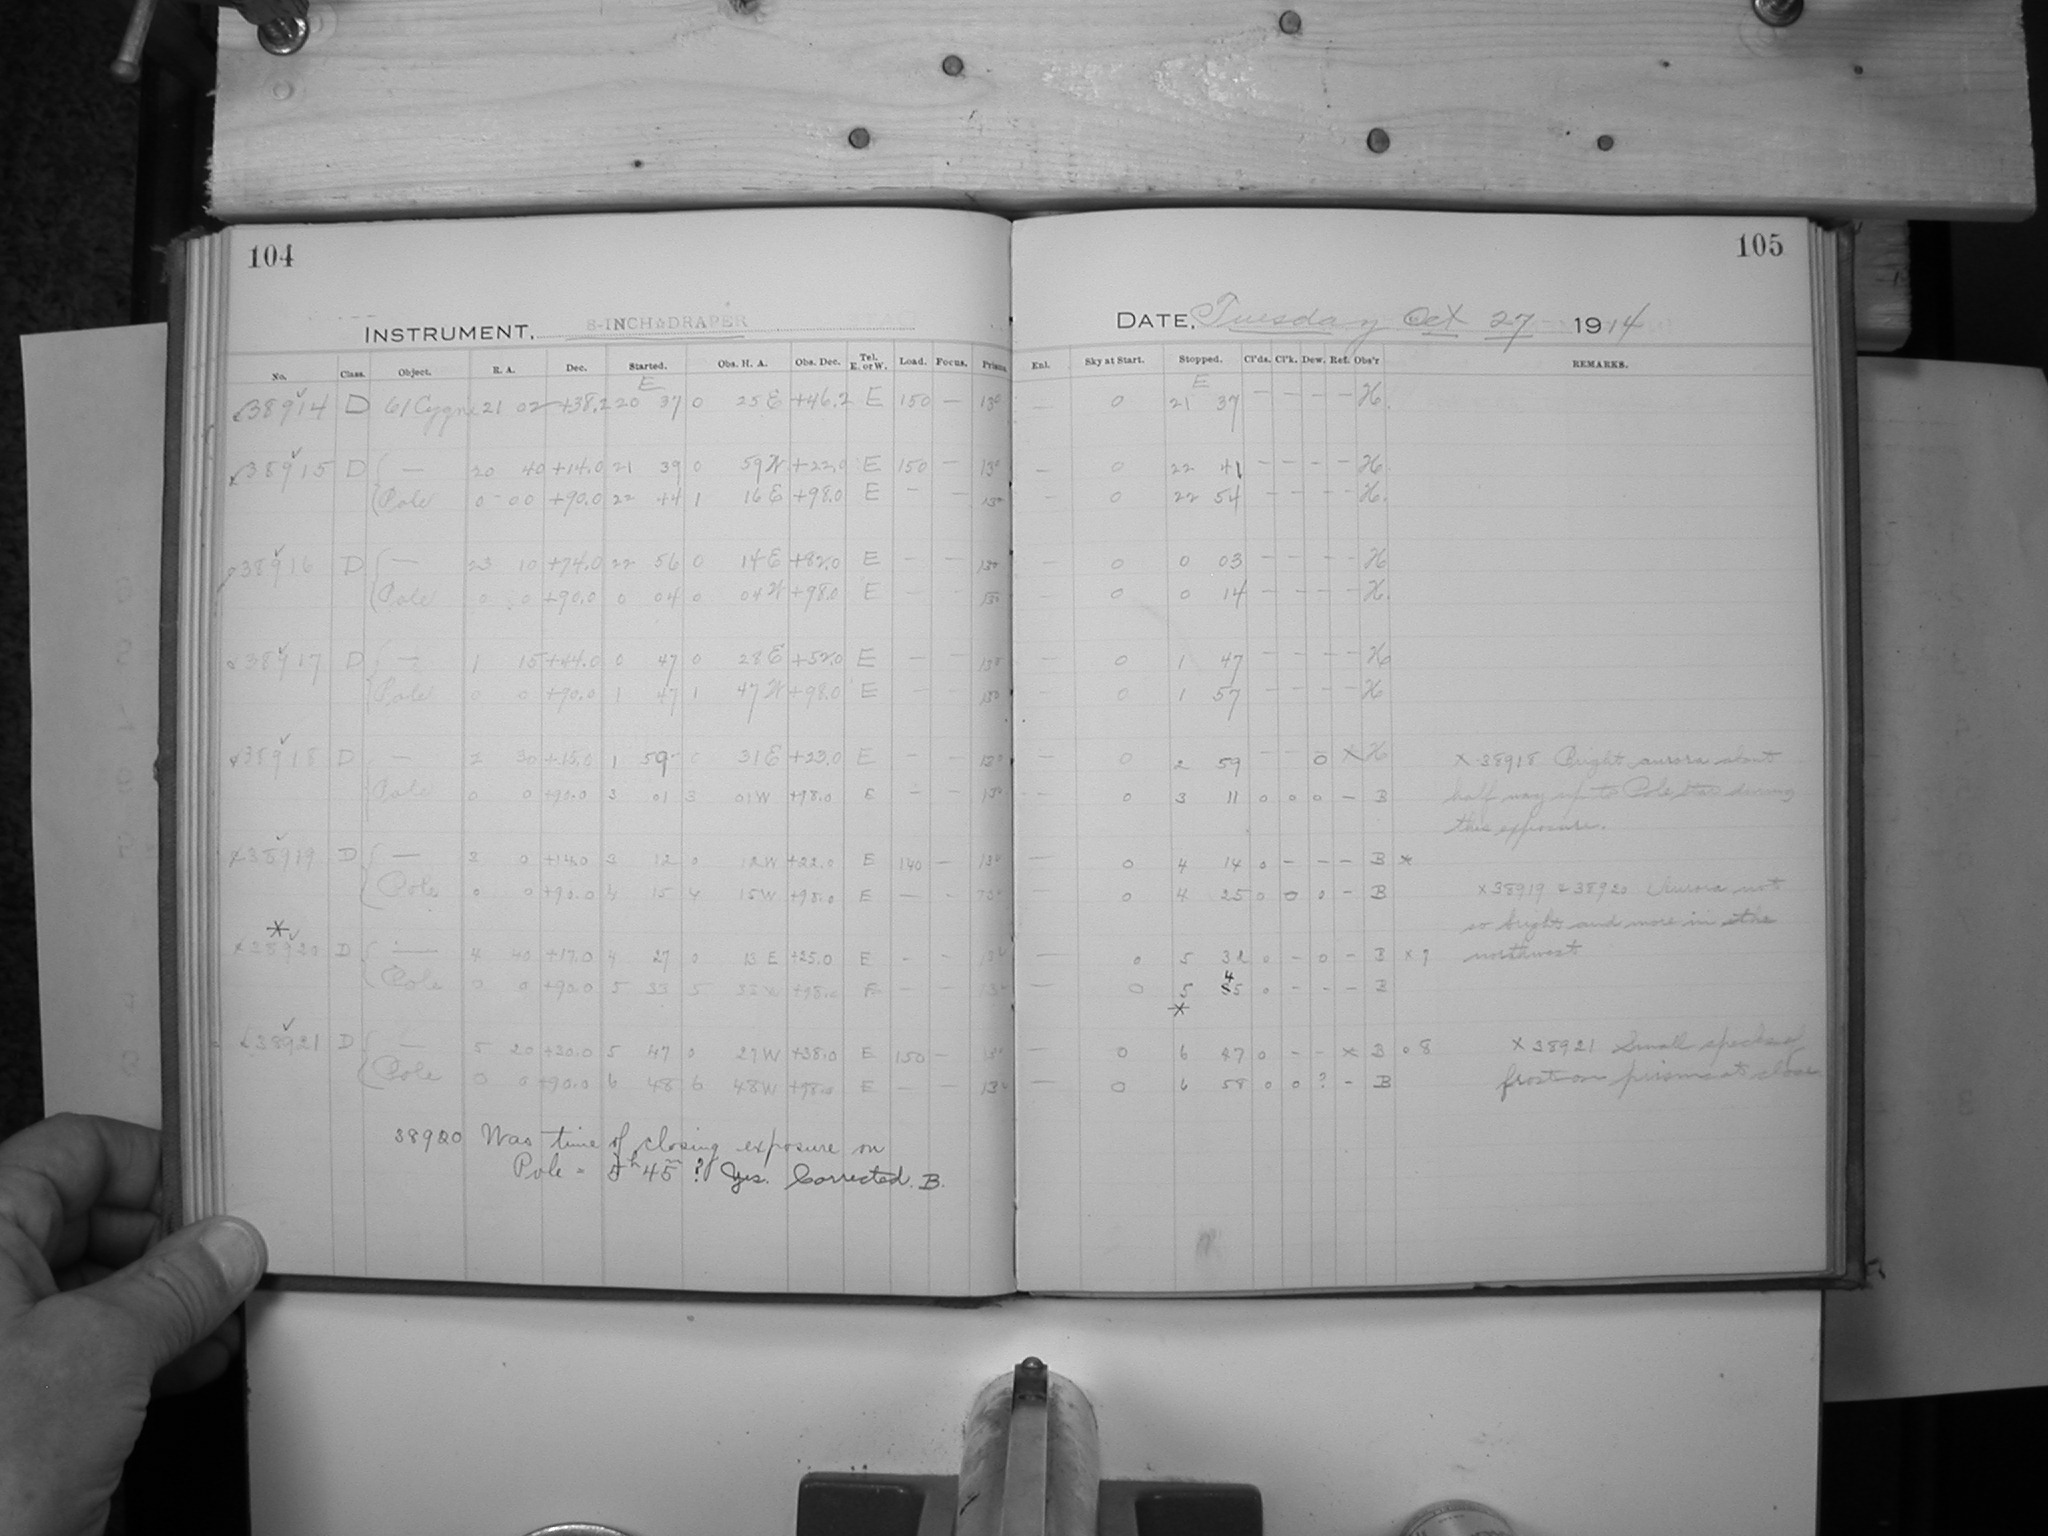 104
INSTRUMENT, 8-INCH DRAPER
No. Class. Object. R. A. Dec. Started. Obs. H. A. Obs. Dec. Tel. E. or W. Load. Focus. Prism.
E
38914 D 61 Cygni 21 02 +38.2 20 37 0 25 E +46.2 E 150 — 13°
38915 D — 20 40 +14.0 21 39 0 59 W +22.0 E 150 — 13°
Pole 0 00 +90.0 22 44 1 16 E +98.0 E — — 13°
38916 D — 23 10 +74.0 22 56 0 14 E +82.0 E — — 13°
Pole 0 0 +90.0 0 04 0 04 W +98.0 E — — 13°
38917 D — 1 15 +44.0 0 47 0 28 E +52.0 E — — 13°
Pole 0 0 +90.0 1 47 1 47 W +98.0 E — — 13°
38918 D — 2 30 +15.0 1 59 0 31 E +23.0 E — — 13°
Pole 0 0 +90.0 3 01 3 01 W +98.0 E — — 13°
38919 D — 3 0 +14.0 3 12 0 12 W +22.0 E 140 — 13°
Pole 0 0 +90.0 4 15 4 15 W +98.0 E — — 13°
38920 D — 4 40 +17.0 4 27 0 13 E +25.0 E — — 13°
Pole 0 0 +90.0 5 33 5 33 W +98.0 E — — 13°
38921 D — 5 20 +30.0 5 47 0 27 W +38.0 E 150 — 13°
Pole 0 0 +90.0 6 48 6 48 W +98.0 E — — 13°
38920 Was time of closing exposure on
Pole = 5h 45m? Yes. Corrected. B.
105
DATE, Tuesday Oct 27 1914
Enl. Sky at Start. Stopped. Cl'ds. Cl'k. Dew. Ref. Obs'r REMARKS.
E
— 0 21 37 — — — — H.
— 0 22 41 — — — — H
— 0 22 54 — — — — H.
— 0 0 03 — — — — H
— 0 0 14 — — — — H.
— 0 1 47 — — — — H
— 0 1 57 — — — — H
0 2 59 — — 0 X H x 38918 Bright aurora about
0 3 11 0 0 0 — B half way up to Pole star during
this exposure.
— 0 4 14 0 — — — B *
— 0 4 25 0 0 0 — B x 38919 & 38920 Aurora not
so bright and more in the
— 0 5 32 0 — 0 — B x 7 northwest
0 5 45 0 — — — B
— 0 6 47 0 — — x B 0 8 x 38921 Small specks of
— 0 6 58 0 0 ? — B frost on prisms at close